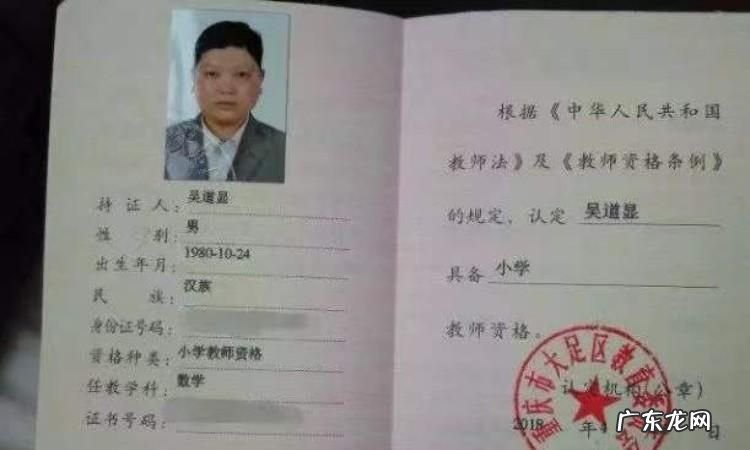 持证人:吴道显
性别:男
出生年月:1980-10-24
民族:汉族
身份证号码:
资格种类:小学教师资格
任教学科:数学
证书号码:
根据《中华人民共和国
教师法》及《教师资格条例》
的规定、认定 吴道显
具备 小学
教师资格。
重庆市大足区教育
认定机构(公章)
2018 年
日
广东龙网